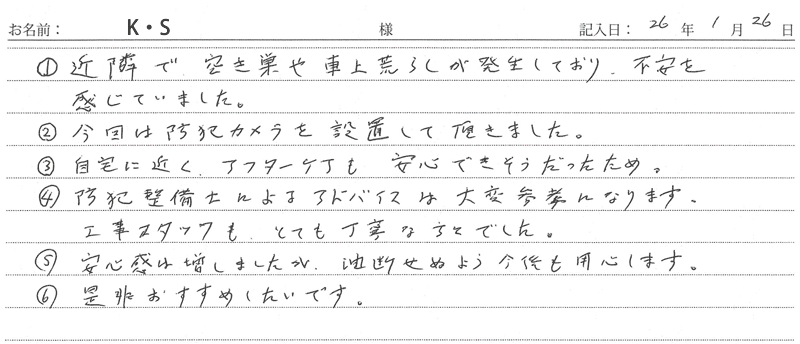 お名前： K・S 様 記入日： 26 年 1 月 26 日
① 近隣で、空き巣や車上荒らしが発生しており、不安を
感じていました。
② 今回は防犯カメラを設置して頂きました。
③ 自宅に近く、アフターケアも安心できそうだったため。
④ 防犯整備士によるアドバイスは大変参考になります。
工事スタッフも、とても丁寧な方々でした。
⑤ 安心感は増しましたが、油断せぬよう今後も用心します。
⑥ 是非おすすめしたいです。